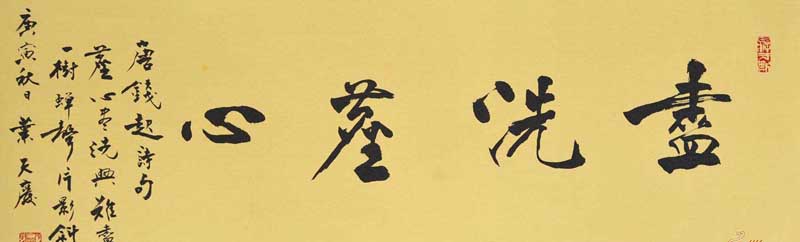 盡洗塵心
唐錢起詩句
塵心盡洗興難盡
一樹蟬聲片影斜
庚寅秋日 葉天